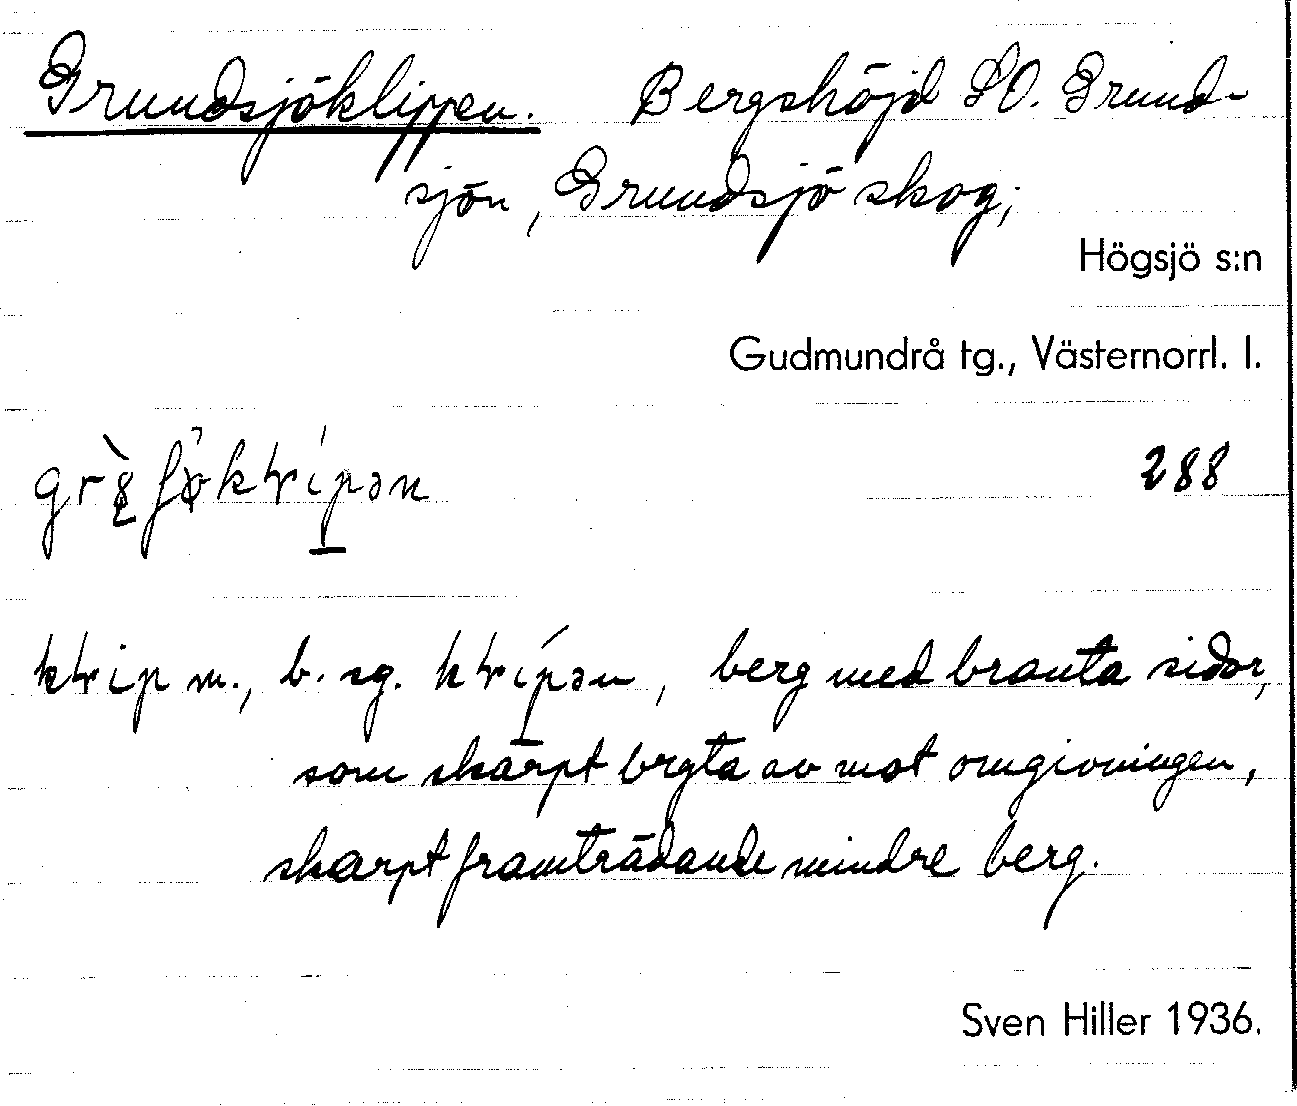 Grundsjöklippen. Bergshöjd SO. Grund-
sjön, Grundsjö skog;
Högsjö s:n
Gudmundrå tg., Västernorrl. l.
288
m., b. sg. , berg med branta sidor,
som skarpt bryta av mot omgivningen,
skarpt framträdande mindre berg.
Sven Hiller 1936.